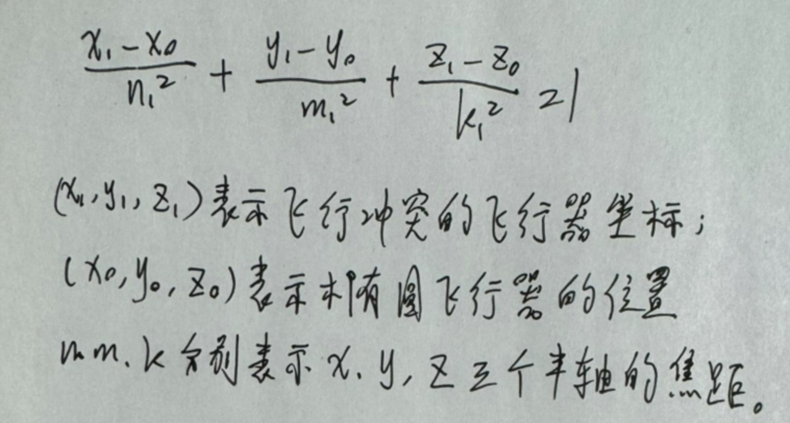 (x₁-x₀)/n₁² + (y₁-y₀)/m₁² + (z₁-z₀)/k₁² = 1
(x₁,y₁,z₁)表示飞行冲突的飞行器坐标;
(x₀,y₀,z₀)表示椭圆飞行器的位置
n m、k分别表示x、y,z三个半轴的焦距。